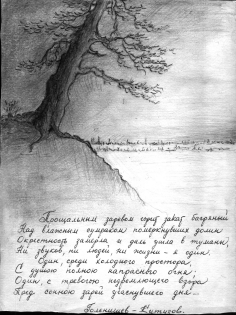 Прощальным заревом горит закат багряный
Над влажным сумраком померкнувших долин
Окрестность замерла и даль ушла в туманы,
Ни звуков, ни людей, ни жизни - я один
Один, среди холодного простора,
С душою полною напрасного огня,
Один, с тревогою недремлющего взора
Пред сонною зарей угаснувшего дня.
Голенищев - Кутузов.